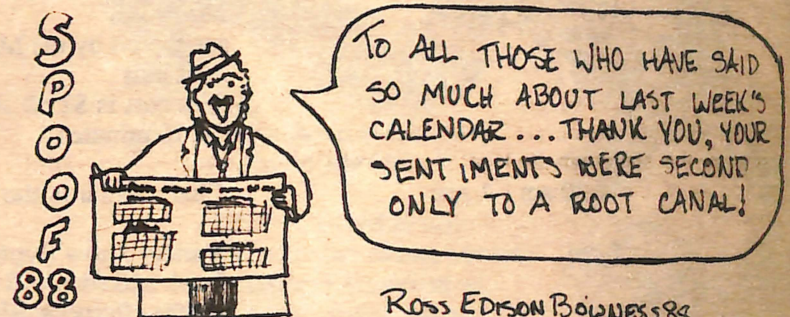 SPOOF
88
TO ALL THOSE WHO HAVE SAID
SO MUCH ABOUT LAST WEEK'S
CALENDAR... THANK YOU, YOUR
SENTIMENTS WERE SECOND
ONLY TO A ROOT CANAL!
ROSS EDISON BOWNESS 88